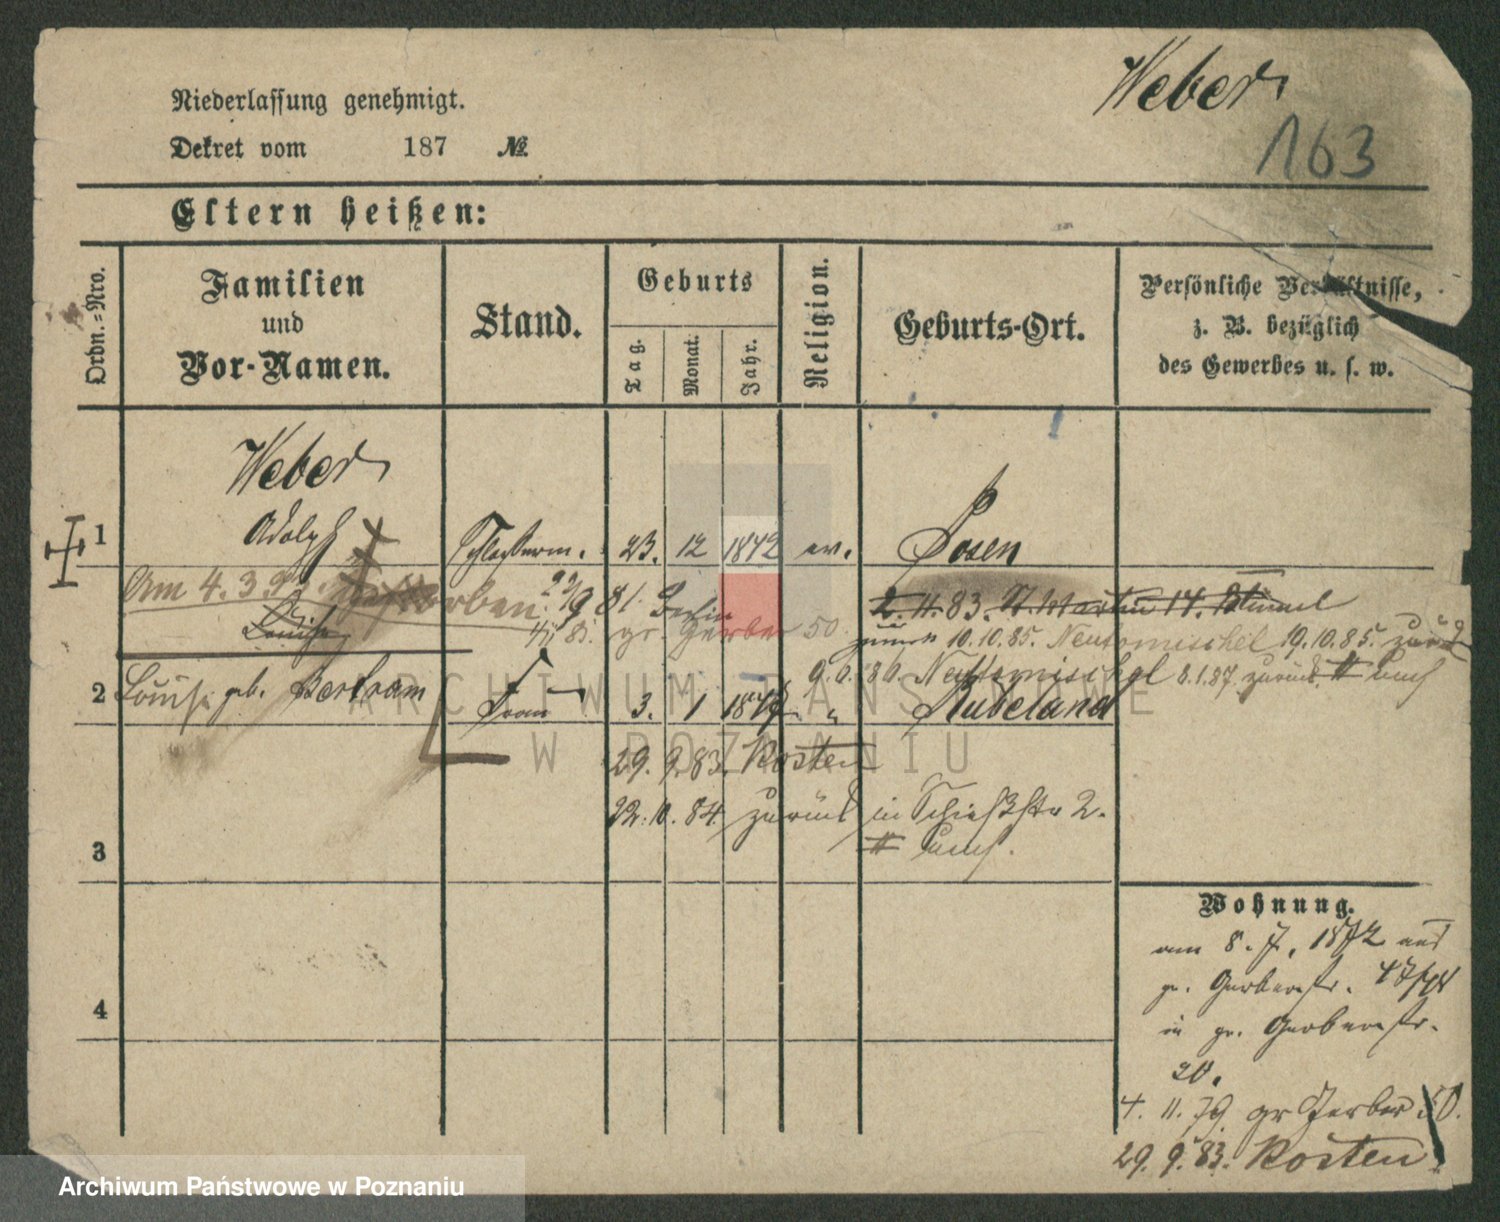 Weber
163
Niederlassung genehmigt.
Dekret vom 187 №
Eltern heißen:
Ordn.-Nro.
Familien
und
Vor-Namen.
Stand.
Geburts
Tag.
Monat.
Jahr.
Religion.
Geburts-Ort.
Persönliche Verhältnisse,
z. B. bezüglich
des Gewerbes u. s. w.
Weber
1 Adolph 23. 12 1842 ev. Posen
Am 4. 3. gestorben 81. Berlin 2. 11. 83. St. Martin 14.
Louise gr. Gerber 50 10. 10. 85. Neutomischel 19. 10. 85. zurück
86 Neutomischel 8. 1. 87 zurück
2 Louise geb. Bertram Frau 3. 1 Rübeland
29. 9. 83. Kosten
22. 10. 84 zurück in Schießstr 2.
3
4
Wohnung.
am 8. 7. 1872 aus
gr. Gerberstr.
in gr. Gerberstr.
20.
4. 11. 79 gr Gerber 50.
29. 9. 83. Kosten.
ARCHIWUM PAŃSTWOWE
W POZNANIU
Archiwum Państwowe w Poznaniu